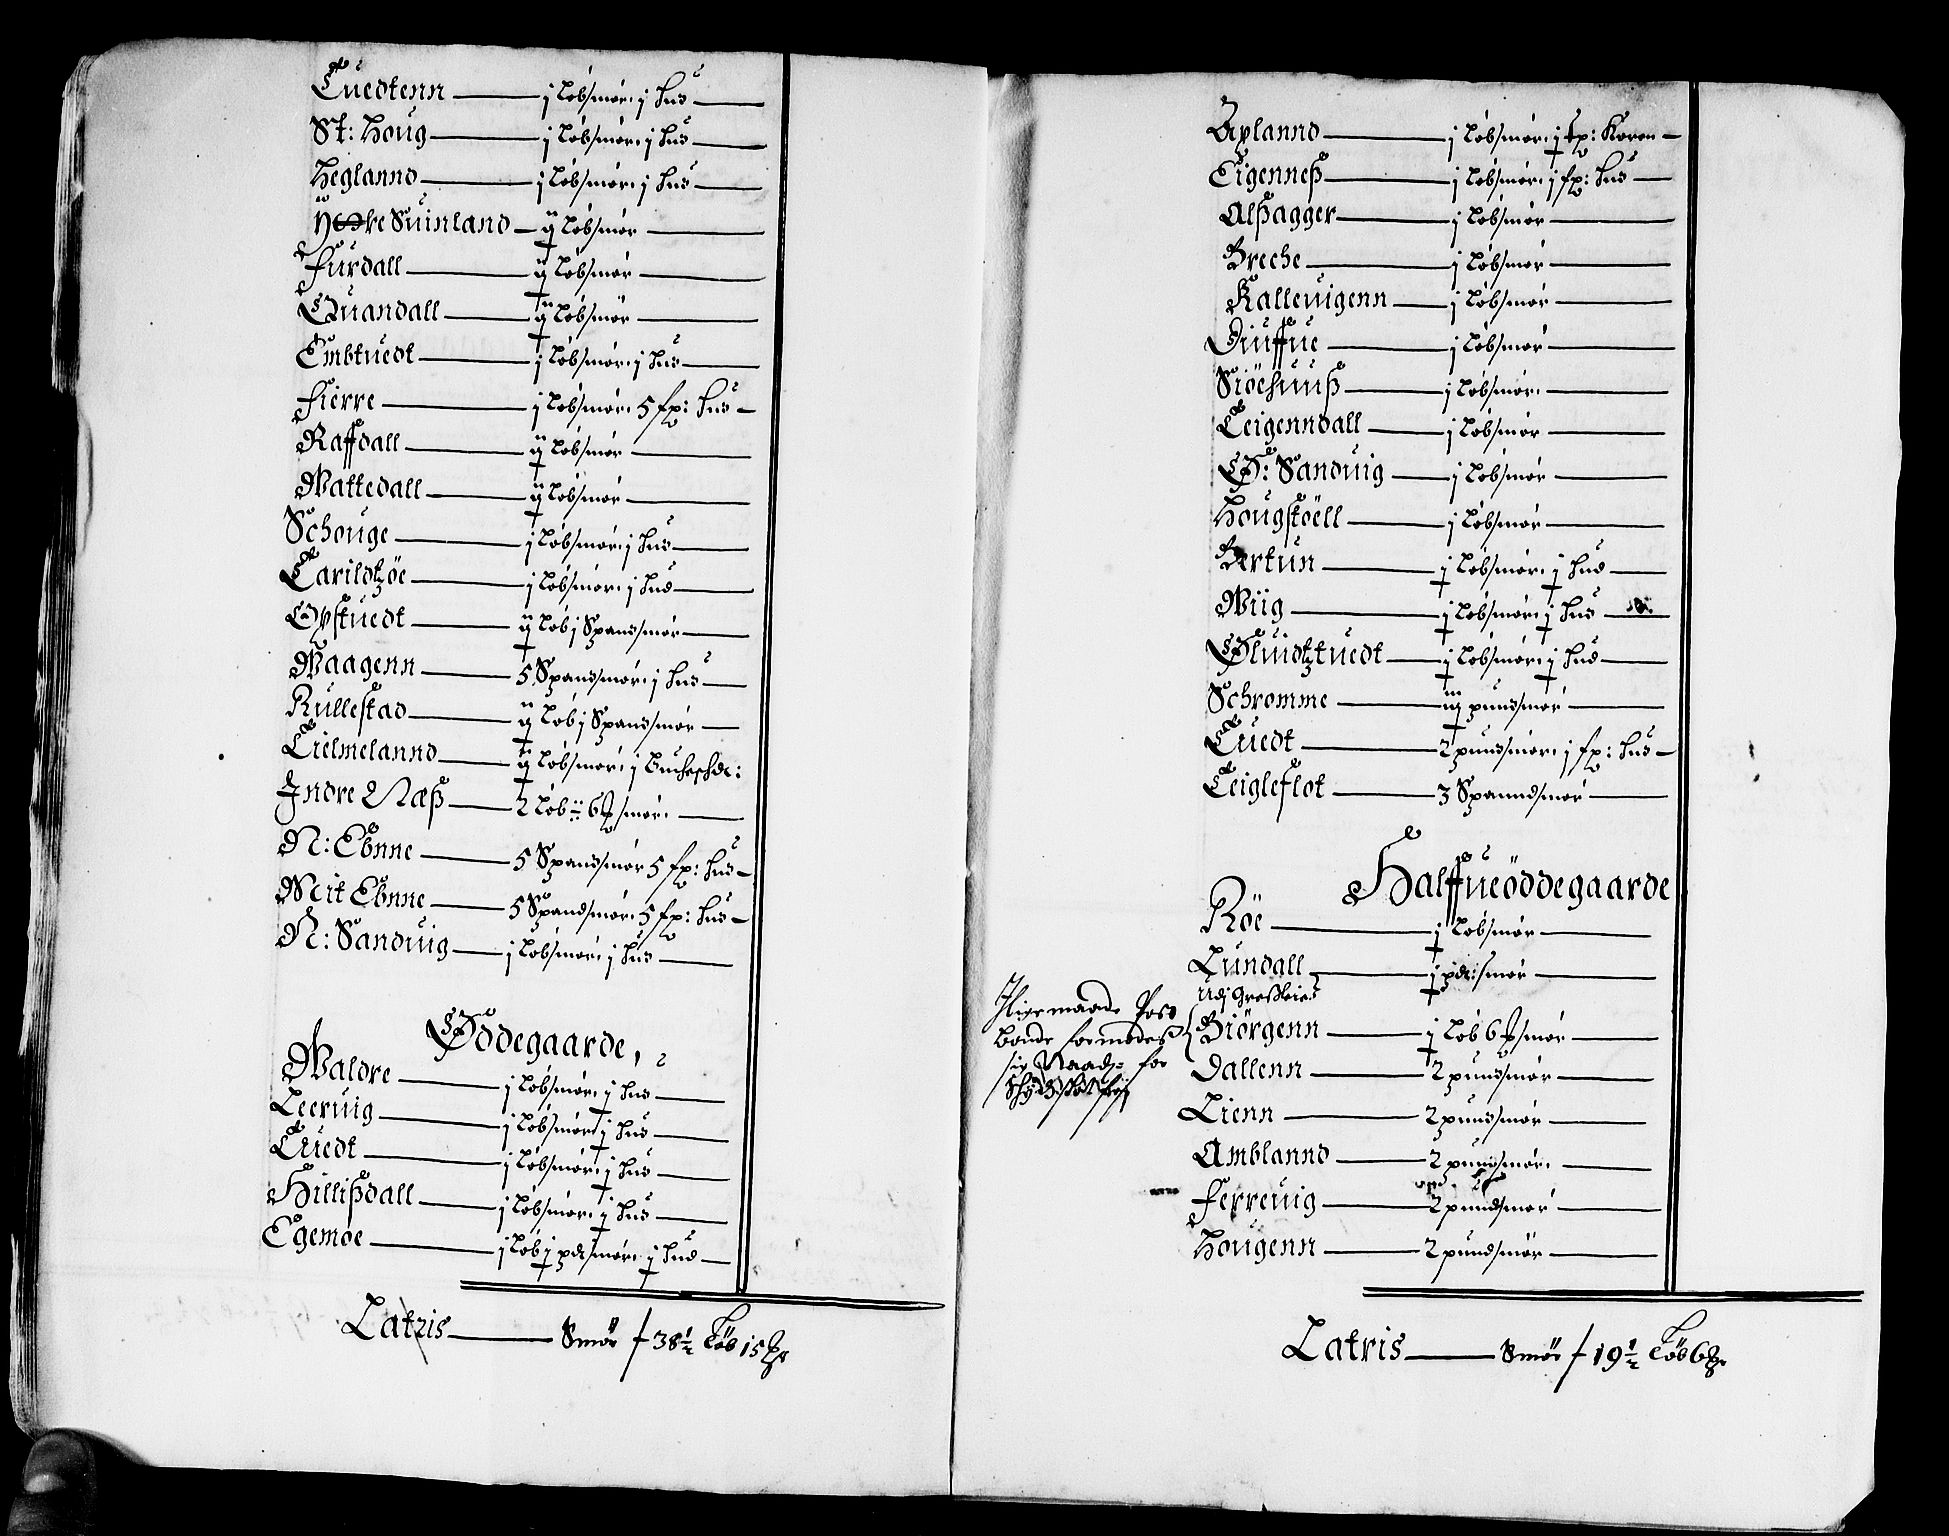 Tuedtenn — j Løbsmør: j Hud —
St: Houg — j Løbsmør: j Hud —
Heglannd — j Løbsmør: j Hud —
Suinland — ij Løbsmør —
Furdall — ij Løbsmør —
Quandall — ij Løbsmør —
Embtuedt — j Løbsmør: j Hud —
Fierre — j Løbsmør: 5 sp: Hud —
Raffdall — ij Løbsmør —
Wattedall — ij Løbsmør —
Schouge — j Løbsmør: j Hud —
Tarildtzöe — j Løbsmør: j Hud —
Opstuedt — ij Løb j Spandsmør —
Waagenn — 5 Spandsmør: j Hud —
Rullestad — ij Løb j Spandsmør —
Tielmelannd — ij Løbsmør: j
Indre Næß — 2 Løb 6 smør: —
N: Ebnne — 5 Spandsmør 5 sp: Hud —
Mit Ebnne — 5 Spandsmør: 5 sp: Hud —
N: Sanduig — j Løbsmør: j Hud —
Ødegaarde,
Waldre — j Løbsmør: j Hud —
Leeruig — j Løbsmør: j Hud —
Tuedt — j Løbsmør: j Hud —
Hillißdall — j Løbsmør: j Hud —
Egemoe — j Løb j pd: smør: j Hud —
Latris — Smør / 38½ Løb 15
Øplannd — j Løbsmør: j tp: Koren —
Eigenneß — j Løbsmør: j sp: Hud —
Alßagger — j Løbsmør —
Breche — j Løbsmør —
Kalleuigenn — j Løbsmør —
Diuffue — j Løbsmør —
Siöehuuß — j Løbsmør: —
Teigenndall — j Løbsmør —
Ø: Sanduig — j Løbsmør —
Hougstöell — j Løbsmør —
Bertun — j Løbsmør: j Hud —
Wiig — j Løbsmør: j Hud —
Øluidtztuedt — j Løbsmør: j Hud —
Schromme — iij pundsmør —
Tuedt — 2 pundsmør: j sp: Hud —
Teigleflot — 3 Spanndsmør —
Halffueöddegaarde
Röe — j Løbsmør —
Lundall — j pd: smør —
Udj Graßleie
Biörgenn — j Løb 6 smør —
Dallenn — 2 pundsmør —
Lienn — 2 pundsmør —
Amblannd — 2 pundsmør: —
Ferreuig — 2 pundsmør —
Hougenn — 2 pundsmør —
Ligemaade Post
bonde formodes
sig Naad: for
Latris — Smør / 19½ Løb 6